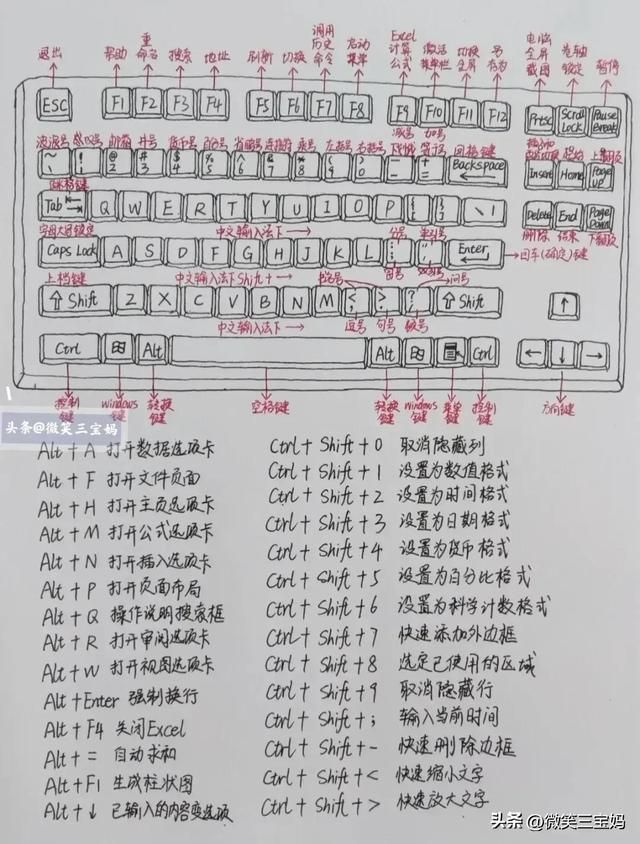 退出 帮助 重命名 搜索 地址 刷新 切换 调用历史命令 启动菜单 Excel计算公式 激活菜单栏 切换全屏 另存为 电脑全屏截图 卷轴锁定 暂停
ESC F1 F2 F3 F4 F5 F6 F7 F8 F9 F10 F11 F12 Prtsc Scroll Lock Pause Break
波浪号 感叹号 邮箱 井号 货币号 百分号 省略号 连接符 乘号 左括号 右括号 减号 下划线 加号 等于号 退格键 起始 上翻页
~ 、 ! 1 @ 2 # 3 $ 4 % 5 ^ 6 & 7 * 8 ( 9 ) 0 - + = Backspace Insert Home Page UP
Tab Q W E R T Y U I O P { [ } ] \ | Delete End Page Down
字母大写锁定 中文输入法下 分号 单引号 删除 结束 下翻页
Caps Lock A S D F G H J K L : ; " ' Enter 回车(确定)键
上档键 中文输入法下Shift+ 冒号 双引号 书名号 问号
Shift Z X C V B N M < , > . ? Shift ↑
中文输入法下 逗号 句号
Ctrl Alt Alt Ctrl ← ↓ →
控制键 windows键 转换键 空格键 转换键 windows键 菜单键 控制键 方向键
头条@微笑三宝妈
Alt + A 打开数据选项卡
Alt + F 打开文件页面
Alt + H 打开主页选项卡
Alt + M 打开公式选项卡
Alt + N 打开插入选项卡
Alt + P 打开页面布局
Alt + Q 操作说明搜索框
Alt + R 打开审阅选项卡
Alt + W 打开视图选项卡
Alt+Enter 强制换行
Alt + F4 关闭Excel
Alt + = 自动求和
Alt+F1 生成柱状图
Alt+↓ 已输入的内容变选项
Ctrl+ Shift+0 取消隐藏列
Ctrl+ Shift+1 设置为数值格式
Ctrl+ Shift+2 设置为时间格式
Ctrl+ Shift+3 设置为日期格式
Ctrl+ Shift+4 设置为货币格式
Ctrl+ Shift+5 设置为百分比格式
Ctrl+ Shift+6 设置为科学计数格式
Ctrl+ Shift+7 快速添加外边框
Ctrl+ Shift+8 选定已使用的区域
Ctrl+ Shift+9 取消隐藏行
Ctrl+ Shift+; 输入当前时间
Ctrl+ Shift+- 快速删除边框
Ctrl+ Shift+< 快速缩小文字
Ctrl+ Shift+> 快速放大文字
头条 @微笑三宝妈